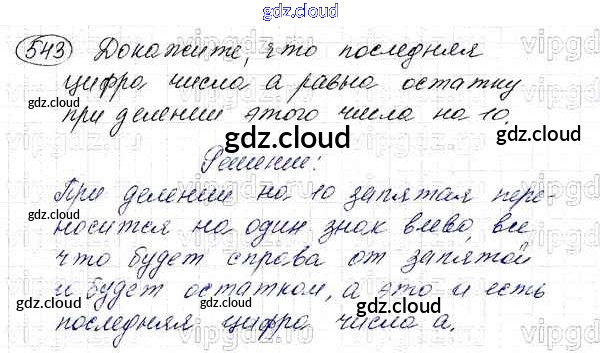 gdz.cloud
543 Докажите, что последняя
цифра числа а равна остатку
gdz.cloud
gdz.cloud
при делении этого числа на 10.
gdz.cloud
Решение:
При делении на 10 запятая пере-
носится на один знак влево, все
что будет справа от запятой
gdz.cloud
gdz.cloud
и будет остатком, а это и есть
последняя цифра числа а.
gdz.cloud